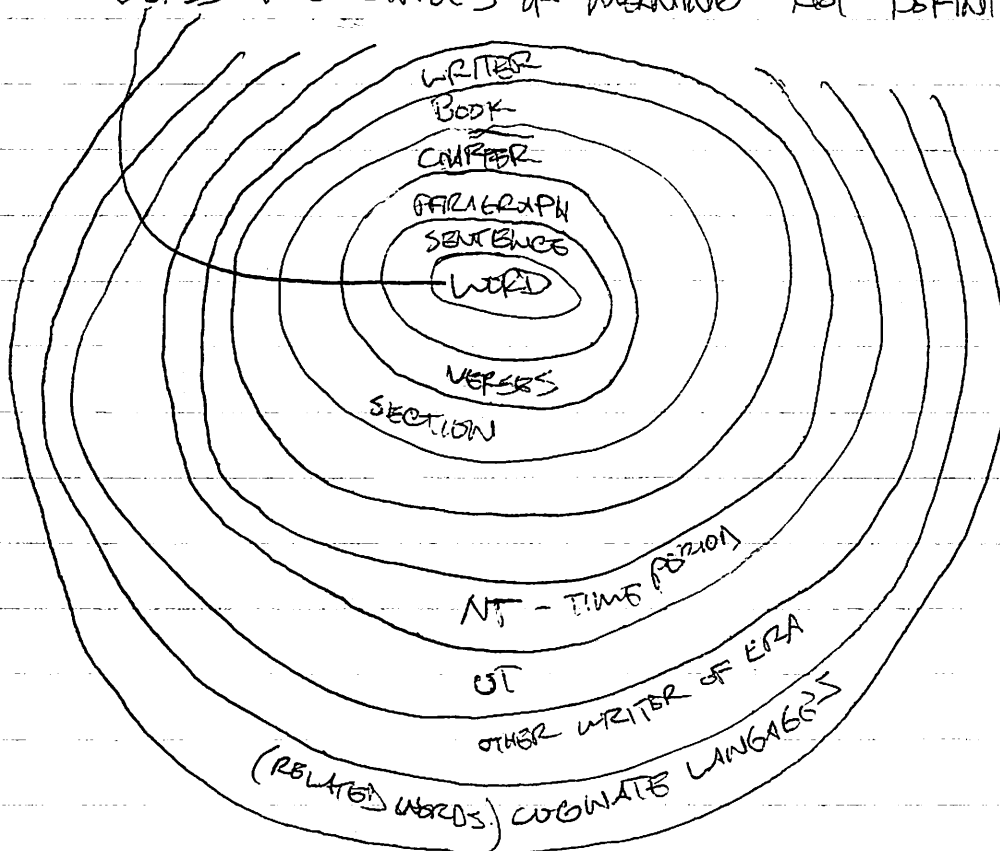 OF MEANING NOT DEFINI
WRITER
BOOK
CHAPTER
PARAGRAPH
SENTENCE
WORD
VERSES
SECTION
NT - TIME PERIOD
OT
OTHER WRITER OF ERA
(RELATED WORDS) COGNATE LANGAGES